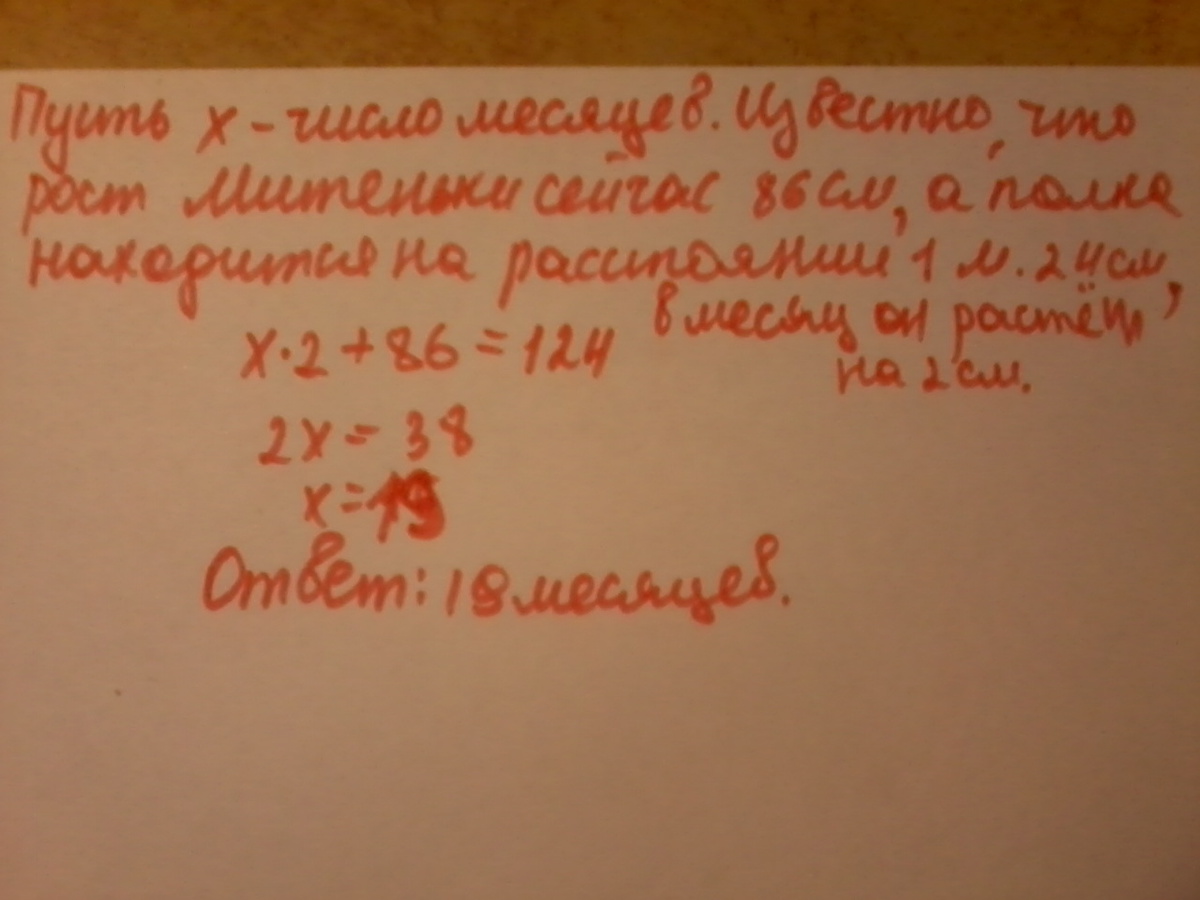 Пусть х - число месяцев. Известно, что
рост Митеньки сейчас 86 см, а полка
находится на расстоянии 1 м. 24 см,
в месяц он растёт
на 2 см.
х·2 + 86 = 124
2х = 38
х = 19
Ответ: 19 месяцев.